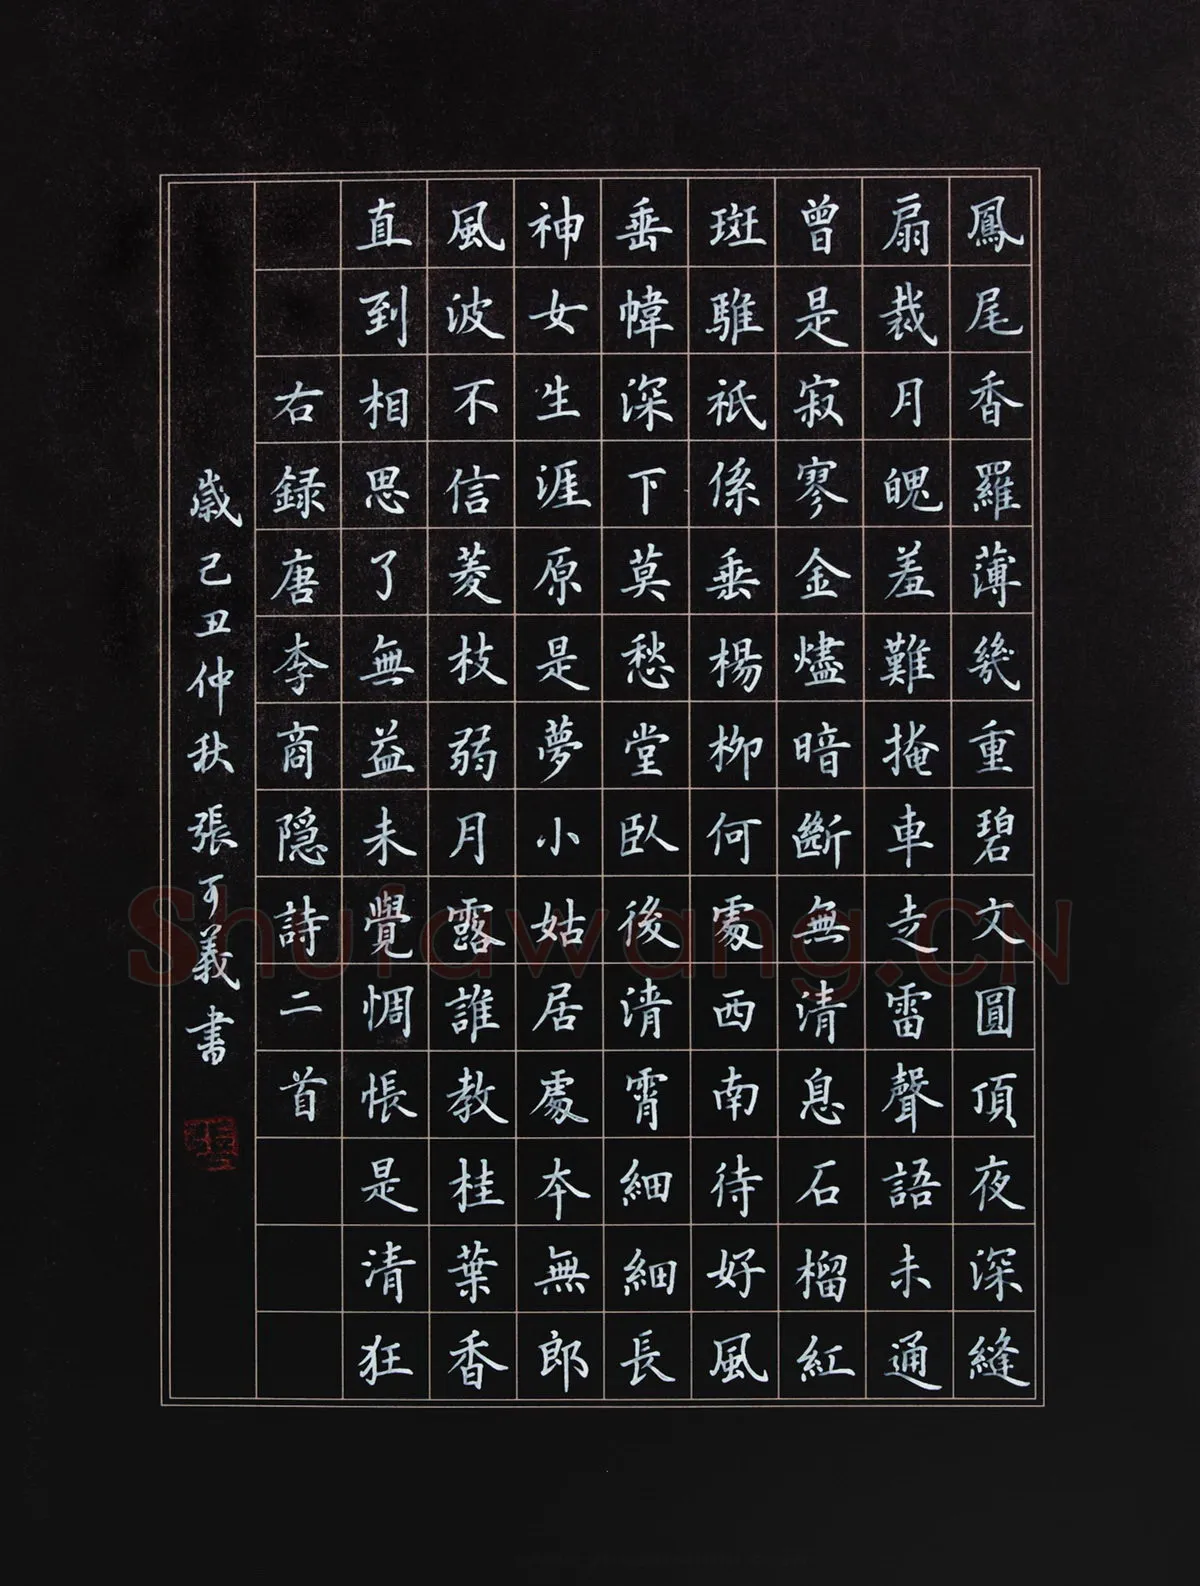 鳳尾香羅薄幾重碧文圓頂夜深縫
扇裁月魄羞難掩車走雷聲語未通
曾是寂寥金燼暗斷無清息石榴紅
斑騅祇係垂楊柳何處西南待好風
垂幃深下莫愁堂臥後清霄細細長
神女生涯原是夢小姑居處本無郎
風波不信菱枝弱月露誰教桂葉香
直到相思了無益未覺惆悵是清狂
右録唐李商隠詩二首
歲己丑仲秋張可義書
Shufawang.CN